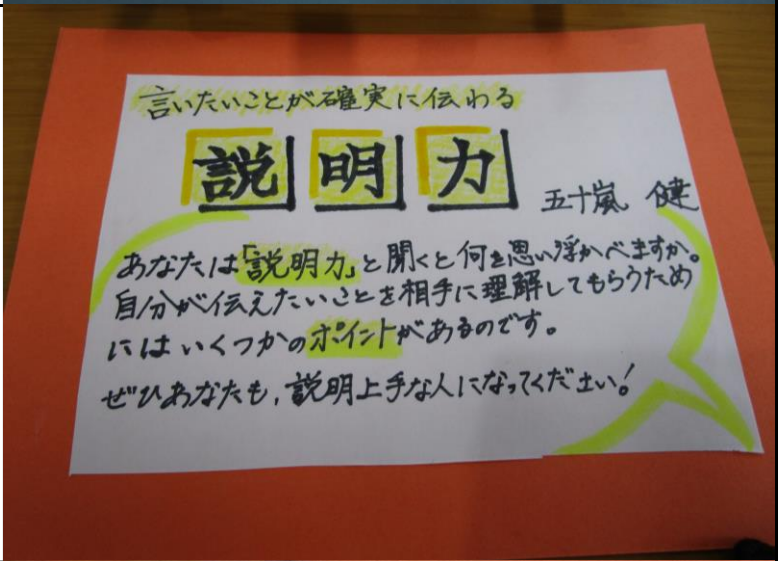 言いたいことが確実に伝わる
説明力
五十嵐 健
あなたは「説明力」と聞くと何を思い浮かべますか。
自分が伝えたいことを相手に理解してもらうため
にはいくつかのポイントがあるのです。
ぜひあなたも、説明上手な人になってください!